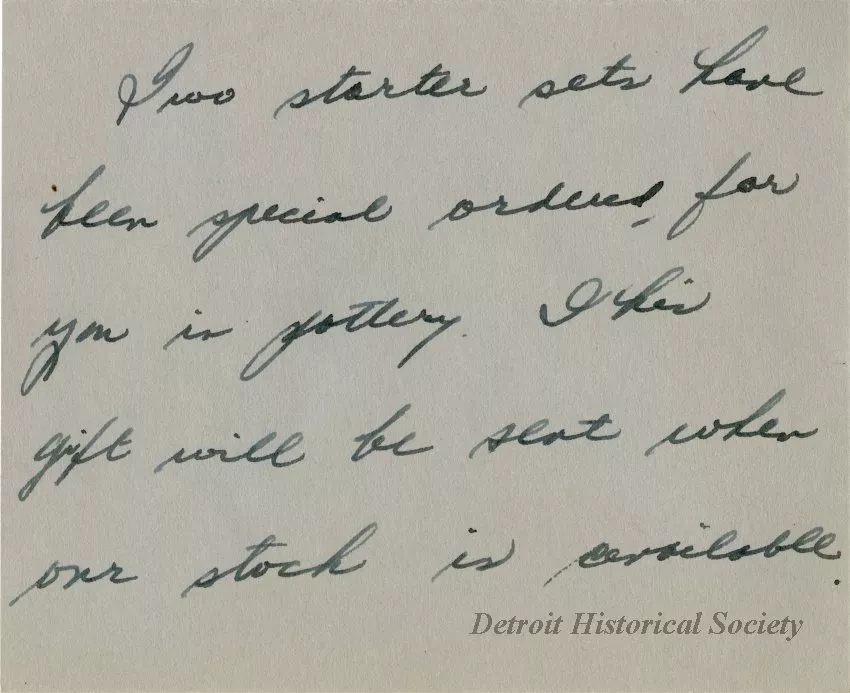 Two starter sets have
been special ordered for
you in pottery. This
gift will be sent when
our stock is available.
Detroit Historical Society